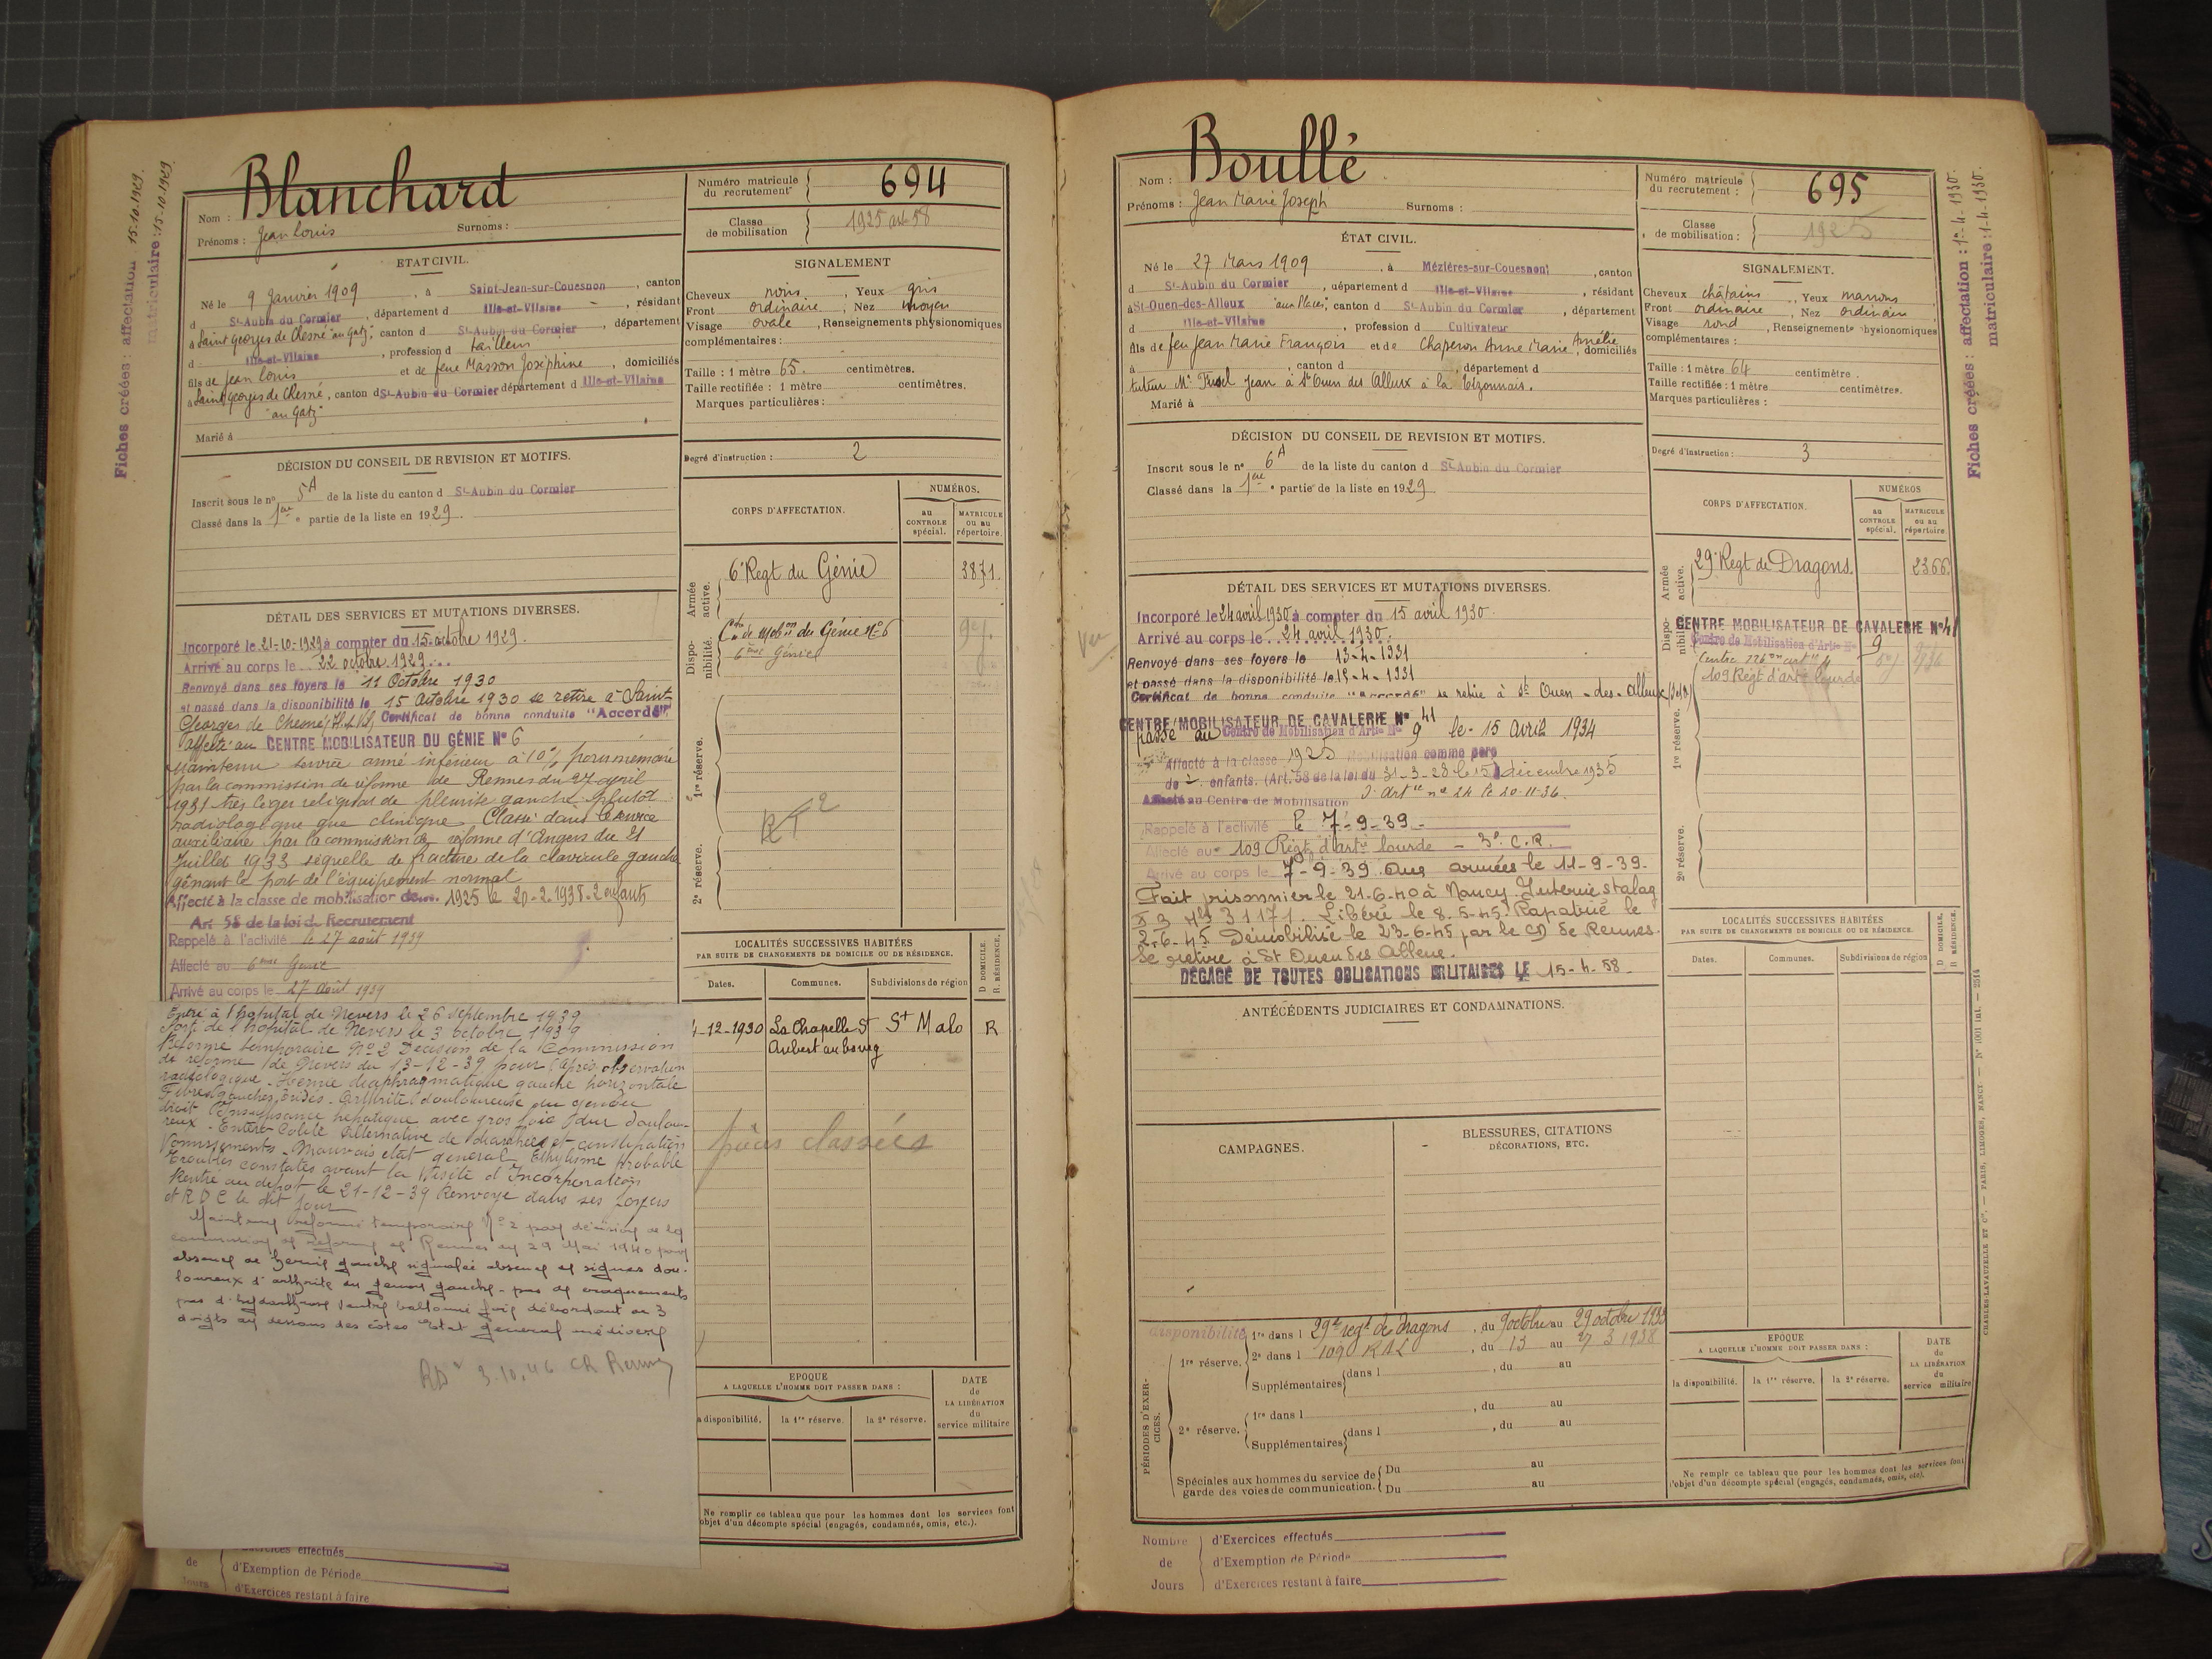 Fiches créées : affectation 15.10.1929.
matriculaire : 15-10-1929
Nom : Blanchard
Prénoms : Jean Louis Surnoms :
Numéro matricule du recrutement 694
Classe de mobilisation 1925 art 58
ETAT CIVIL.
Né le 9 Janvier 1909, à Saint-Jean-sur-Couesnon, canton
d St-Aubin du Cormier, département d Ille-et-Vilaine, résidant
à Saint Georges de Chesné "au Gatz", canton d St-Aubin du Cormier, département
d Ille-et-Vilaine, profession d tailleur
fils de Jean Louis et de feue Masson Joséphine, domiciliés
à Saint Georges de Chesné, canton d St-Aubin du Cormier département d Ille-et-Vilaine
"au Gatz"
Marié à
SIGNALEMENT
Cheveux noirs, Yeux gris
Front ordinaire, Nez moyen
Visage ovale, Renseignements physionomiques
complémentaires :
Taille : 1 mètre 65. centimètres.
Taille rectifiée : 1 mètre centimètres.
Marques particulières :
Degré d'instruction : 2
DÉCISION DU CONSEIL DE REVISION ET MOTIFS.
Inscrit sous le no 5A de la liste du canton d St-Aubin du Cormier
Classé dans la 1ere partie de la liste en 1929.
CORPS D'AFFECTATION.
NUMÉROS.
au CONTROLE spécial.
MATRICULE ou au répertoire.
Armée active.
6e Regt du Génie 3871
Disponibilité.
Cre de Mobon du Génie No 6
6ème Génie
1re réserve.
2e réserve.
RT2
DÉTAIL DES SERVICES ET MUTATIONS DIVERSES.
Incorporé le 21-10-1929 à compter du 15 octobre 1929.
Arrivé au corps le 22 octobre 1929...
Renvoyé dans ses foyers le 11 Octobre 1930
et passé dans la disponibilité le 15 Octobre 1930 se retire à Saint
Georges de Chesné (I.&V.) Certificat de bonne conduite "Accordé"
Affecté au CENTRE MOBILISATEUR DU GÉNIE No 6
Maintenu service armé inférieur à 10% pour mémoire
par la commission de réforme de Rennes du 27 avril
1931 très léger reliquat de pleurite gauche plutôt
radiologique que clinique. Classé dans le service
auxiliaire par la commission de réforme d'Angers du 21
Juillet 1933 séquelle de fracture de la clavicule gauche
gênant le port de l'équipement normal
Affecté à la classe de mobilisation de 1925 le 20-2-1938-2 enfants
Art 58 de la loi de Recrutement
Rappelé à l'activité le 27 août 1939
Affecté au 6ème Génie
Arrivé au corps le 27 août 1939
Entré à l'hôpital de Nevers le 26 septembre 1939
Sorti de l'hôpital de Nevers le 3 octobre 1939
Réforme temporaire No 2 Décision de la Commission
de réforme de Nevers du 13-12-39 pour (après observation
radiologique. Hernie diaphragmatique gauche horizontale
droit Insuffisance hépatique avec gros foie dur doulou-
reux. Entéro-Colite Alternative de diarrhées et constipation
Vomissements. Mauvais état général Ethylisme probable
Troubles constatés avant la visite d'Incorporation
Rentré au dépôt le 21-12-39 Renvoyé dans ses foyers
et RDC le dit jour
Maintenu réformé temporaire No 2 par décision de la
commission de réforme de Rennes du 29 Mai 1940 pour
absence de hernie gauche signalée absence de signes dou-
loureux d'arthrite du genou gauche - pas de craquements
pas d'hydarthrose ventre ballonné foie débordant de 3
doigts au dessous des côtes Etat général médiocre
3.10.46 CR Rennes
LOCALITÉS SUCCESSIVES HABITÉES
PAR SUITE DE CHANGEMENTS DE DOMICILE OU DE RÉSIDENCE.
Dates. Communes. Subdivisions de région
D DOMICILE. R. RÉSIDENCE.
-12-1930 La Chapelle St Aubert au bourg St Malo R
pièces classées
EPOQUE
A LAQUELLE L'HOMME DOIT PASSER DANS :
a disponibilité. la 1re réserve. la 2e réserve.
DATE de LA LIBÉRATION du service militaire
Ne remplir ce tableau que pour les hommes dont les services font
objet d'un décompte spécial (engagés, condamnés, omis, etc.).
d'Exercices effectués
de d'Exemption de Période
Jours d'Exercices restant à faire
Nom : Boullé
Prénoms : Jean Marie Joseph Surnoms :
Numéro matricule du recrutement : 695
Classe de mobilisation : 1925
Fiches créées : affectation : 1er-4-1930.
matriculaire : 1-4-1930.
ÉTAT CIVIL.
Né le 27 Mars 1909, à Mézières-sur-Couesnon, canton
d St-Aubin du Cormier, département d Ille-et-Vilaine, résidant
à St-Ouen-des-Alleux "aux Places", canton d St-Aubin du Cormier, département
d Ille-et-Vilaine, profession d Cultivateur
fils de feu Jean Marie François et de Chaperon Anne Marie Amélie, domiciliés
à , canton d , département d
tuteur Mr Jean à St Ouen des Alleux à la Tizonnais.
Marié à
SIGNALEMENT.
Cheveux châtains, Yeux marrons
Front ordinaire, Nez ordinaire
Visage rond, Renseignements physionomiques
complémentaires :
Taille : 1 mètre 64 centimètre.
Taille rectifiée : 1 mètre centimètres.
Marques particulières :
Degré d'instruction : 3
DÉCISION DU CONSEIL DE REVISION ET MOTIFS.
Inscrit sous le no 6A de la liste du canton d St-Aubin du Cormier
Classé dans la 1ere partie de la liste en 1929
CORPS D'AFFECTATION.
NUMÉROS
au CONTROLE spécial.
MATRICULE ou au répertoire
Armée active.
29e Regt de Dragons. 2366
Disponibilité.
CENTRE MOBILISATEUR DE CAVALERIE No 41
Centre de Mobilisation d'Artie No 9
109 Régt d'arte lourde
1re réserve.
2e réserve.
DÉTAIL DES SERVICES ET MUTATIONS DIVERSES.
Incorporé le 24 avril 1930 à compter du 15 avril 1930.
Arrivé au corps le 24 avril 1930.
Renvoyé dans ses foyers le 13-4-1931
et passé dans la disponibilité le 15-4-1931
Certificat de bonne conduite "Accordé" se retire à St Ouen-des-Alleux (I&V)
CENTRE MOBILISATEUR DE CAVALERIE No 41
passé au Centre de Mobilisation d'Artie No 9 le 15 Avril 1934
Affecté à la classe 1925 Mobilisation comme père
de 2 enfants. (Art. 58 de la loi du 31-3-28 le 15 décembre 1935
Affecté au Centre de Mobilisation d'artie no 24 le 20-11-36.
Rappelé à l'activité le 7-9-39-
Affecté au 109 Régt d'arte lourde - 3e C.R.
Arrivé au corps le 7-9-39. Aux armées le 11-9-39.
Fait prisonnier le 21-6-40 à Nancy. Interné stalag
31171. Libéré le 8-5-45. Rapatrié le
2-6-45 Démobilisé le 23-6-45 par le CD de Rennes.
Se retire à St Ouen des Alleux.
DÉGAGÉ DE TOUTES OBLIGATIONS MILITAIRES LE 15-4-58
ANTÉCÉDENTS JUDICIAIRES ET CONDAMNATIONS.
LOCALITÉS SUCCESSIVES HABITÉES
PAR SUITE DE CHANGEMENTS DE DOMICILE OU DE RÉSIDENCE.
Dates. Communes. Subdivisions de région
D DOMICILE. R RÉSIDENCE.
CAMPAGNES.
BLESSURES, CITATIONS
DÉCORATIONS, ETC.
PÉRIODES D'EXERCICES.
disponibilité
1re réserve.
1re dans l 29e regt de dragons, du 9 octobre au 29 octobre 1933
2e dans l 109 RAL, du 13 au 27 3 1938
Supplémentaires dans l , du au
2e réserve.
1re dans l , du au
Supplémentaires dans l , du au
Spéciales aux hommes du service de garde des voies de communication.
Du au
Du au
EPOQUE
A LAQUELLE L'HOMME DOIT PASSER DANS :
la disponibilité. la 1re réserve. la 2e réserve.
DATE de LA LIBÉRATION du service militaire
Ne remplir ce tableau que pour les hommes dont les services font
l'objet d'un décompte spécial (engagés, condamnés, omis, etc).
CHARLES-LAVAUZELLE ET Cie. — PARIS, LIMOGES, NANCY
Nombre de Jours
d'Exercices effectués
d'Exemption de Période
d'Exercices restant à faire